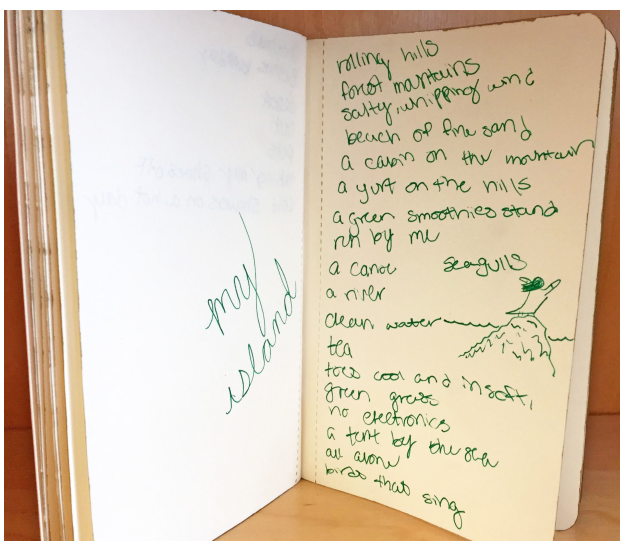 my
island
rolling hills
forest mountains
salty, whipping wind
beach of fine sand
a cabin on the mountain
a yurt on the hills
a green smoothies stand
run by me
a canoe
seagulls
a river
clean water
tea
toes cool and in soft,
green grass
no electronics
a tent by the sea
all alone
birds that sing